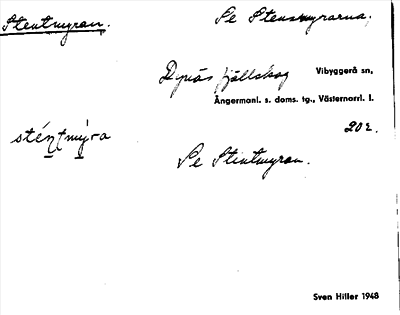 Stentmyran.
Se Stensmyrarna,
Dynäs fjällskog Vibyggerå sn,
Ångermanl. s. doms. tg., Västernorrl. l.
stén̥tmýra
202.
Se Stintmyran.
Sven Hiller 1948